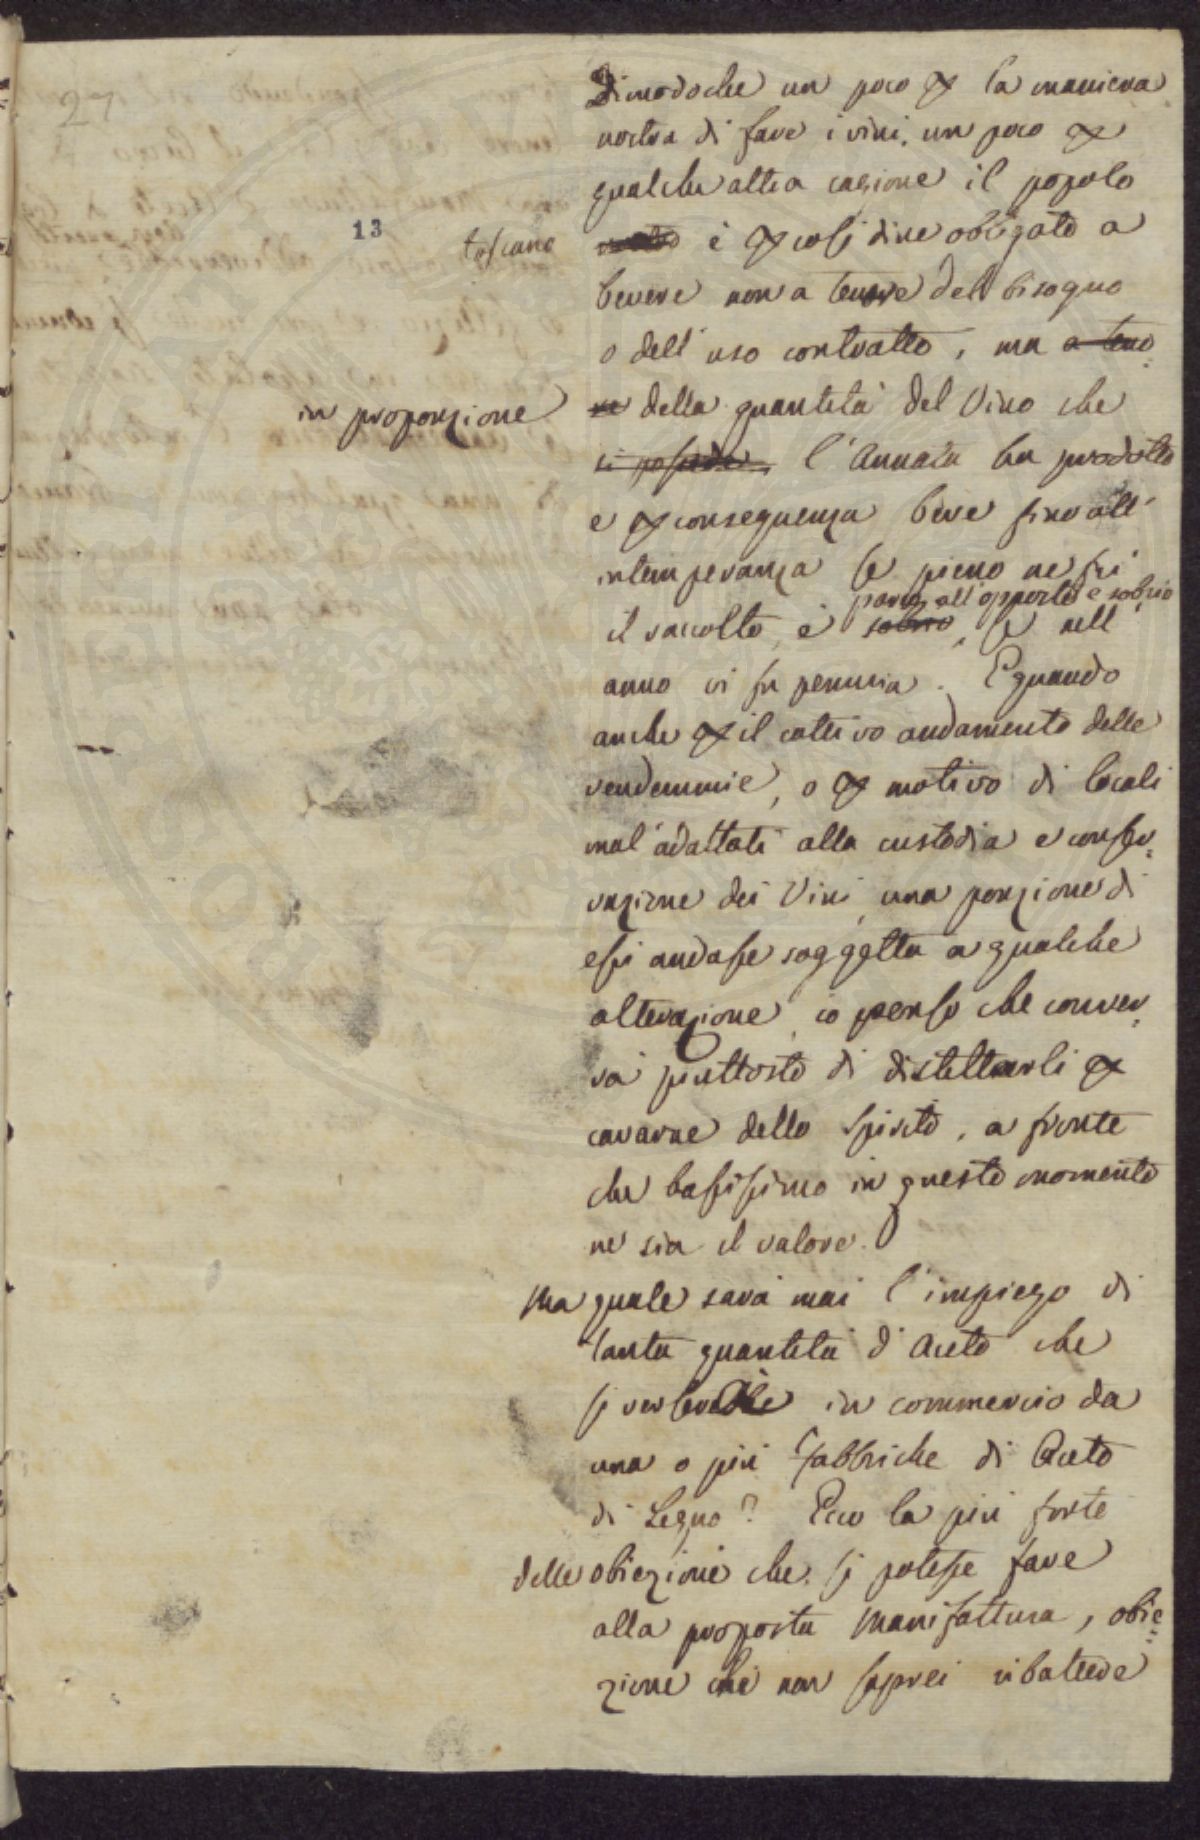 27
13
Dimodoche un poco p la maniera
nostra di fare i vini, un poco p
qualche altra cagione il popolo
toscano
è p così dire obbligato a
bevere non a tenore del bisogno
o dell'uso contratto, ma a teno
in proporzione
re della quantità del Vino che
si possede, l'Annata ha prodotto
e p conseguenza beve fino all'
intemperanza se pieno ne fù
parco all'opposto e sobrio
il raccolto, è sobrio, se nell'
anno vi fu penuria. E quando
anche p il cattivo andamento delle
vendemmie, o p motivo di locali
mal'adattati alla custodia e conser=
vazione dei Vini, una porzione di
essi andasse soggetta a qualche
alterazione, io penso che conver=
rà piuttosto di distillarli p
cavarne dello spirito, a fronte
che bassissimo in questo momento
ne sia il valore.
Ma quale sarà mai l'impiego di
tanta quantità d'Aceto che
si in commercio da
una o più fabbriche di Aceto
di Legno? Ecco la più forte
delle obiezioni che si potesse fare
alla proposta Manifattura, obie=
zione che non saprei ribattere